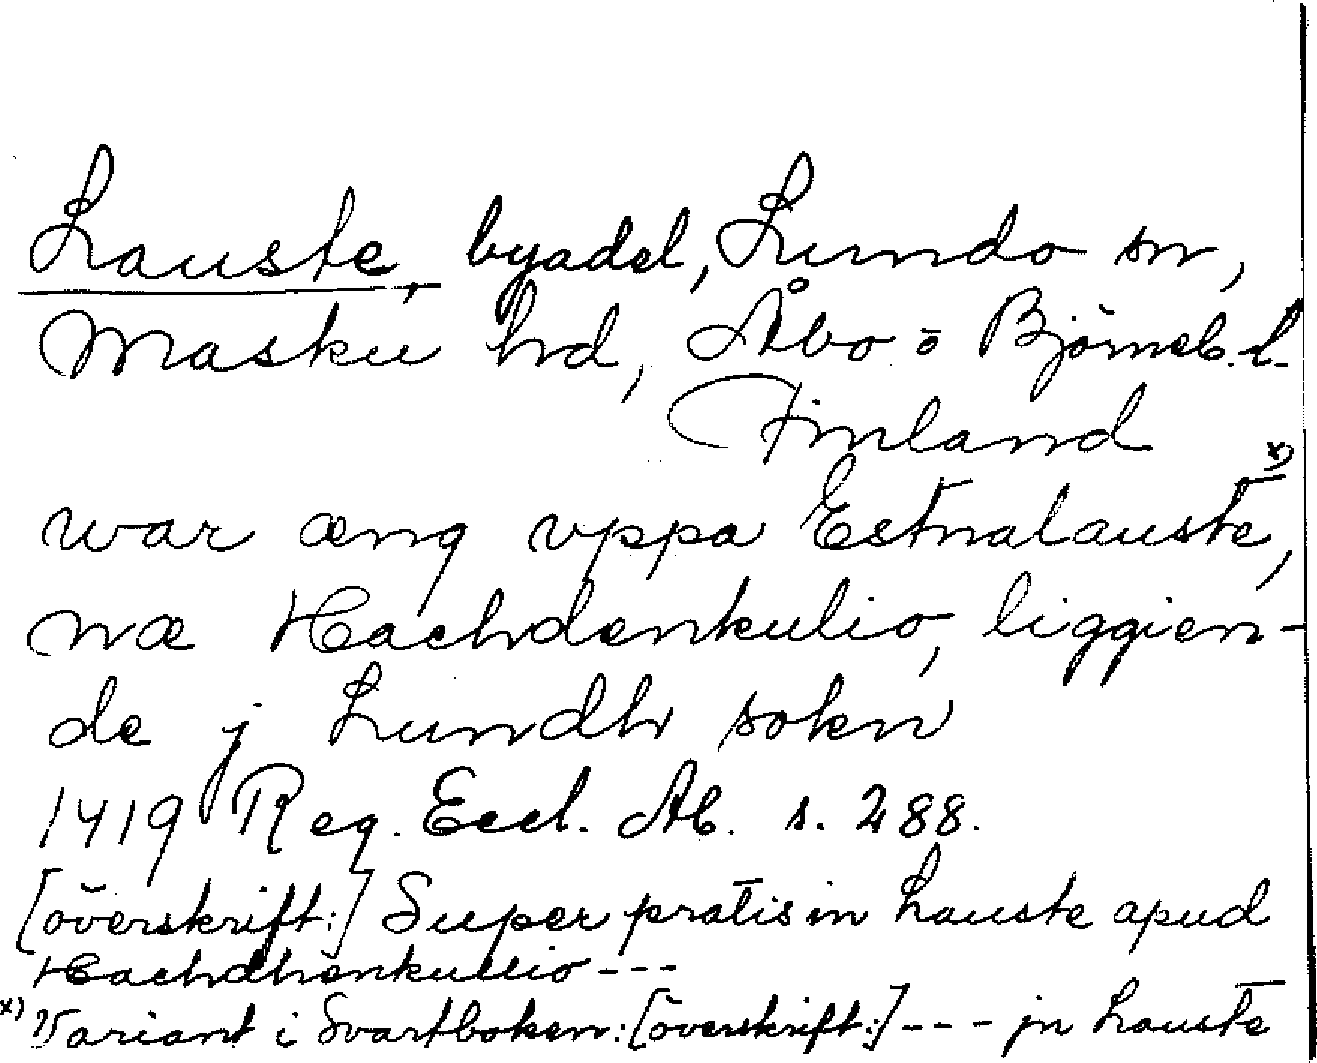 Lauste, byadel, Lundo sn,
Masku hd, Åbo o Björneb. l.
Finland
war æng vppa Eetnalauste, x)
næ Hachdenkulio, liggien-
de j Lundh sokn
1419 Reg. Eccl. Ab. s. 288.
[överskrift:] Super pratis in Lauste apud
Hachdhenkullio ---
x) Variant i Svartboken: [överskrift:] --- jn Lauste